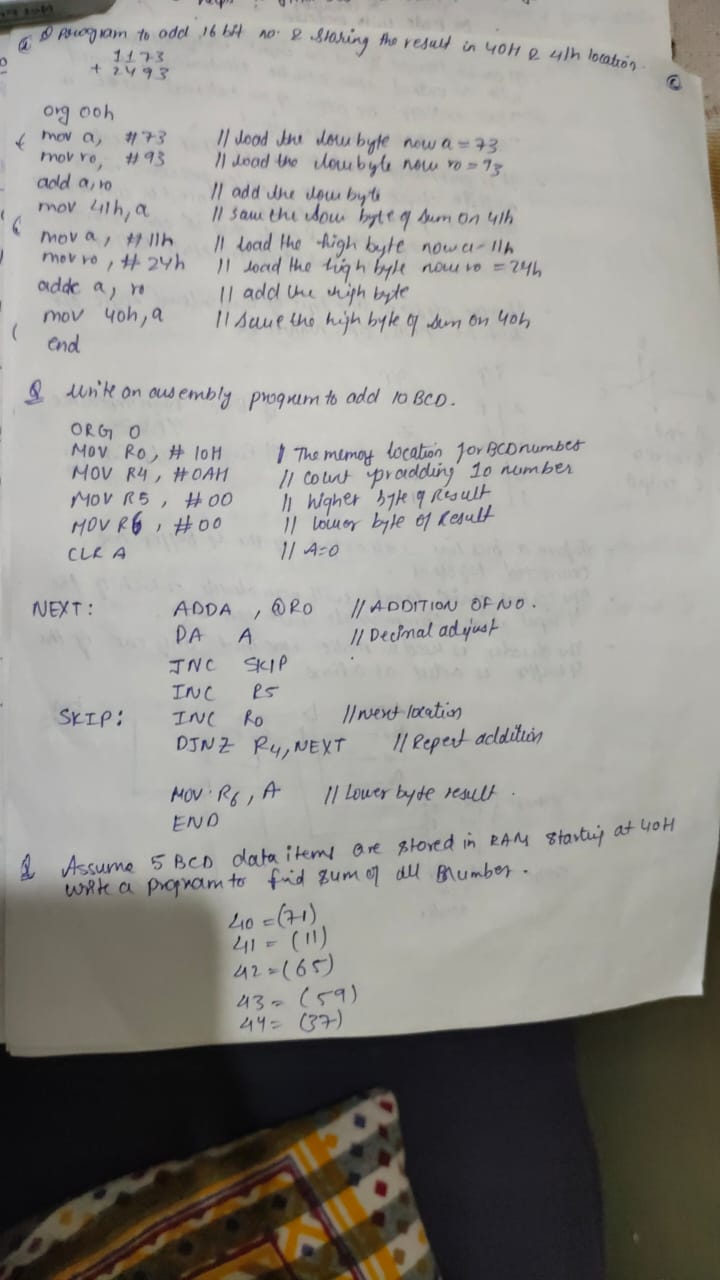 Q Program to add 16 bit no. & Storing the result in 40H & 41h location.
1173
+ 2493
org 00h
mov a, #73 // load the low byte now a = 73
mov ro, #93 // load the low byte now ro = 93
add a, ro // add the low byte
mov 41h, a // save the low byte of sum on 41h
mov a, #11h // load the high byte now a = 11h
mov ro, #24h // load the high byte now ro = 24h
addc a, ro // add the high byte
mov 40h, a // save the high byte of sum on 40h
end
Q Write an assembly program to add 10 BCD.
ORG 0
MOV R0, # 10H The memory location for BCD number
MOV R4, #0AH // count for adding 10 number
MOV R5, #00 // higher byte of Result
MOV R6, #00 // lower byte of Result
CLR A // A=0
NEXT: ADDA , @R0 // ADDITION OF NO.
DA A // Decimal adjust
JNC SKIP
INC R5
SKIP: INC R0 // next location
DJNZ R4, NEXT // Repeat addition
MOV R6, A // Lower byte result.
END
Q Assume 5 BCD data items are stored in RAM starting at 40H
write a program to find sum of all number.
40 = (71)
41 = (11)
42 = (65)
43 = (59)
44 = (37)